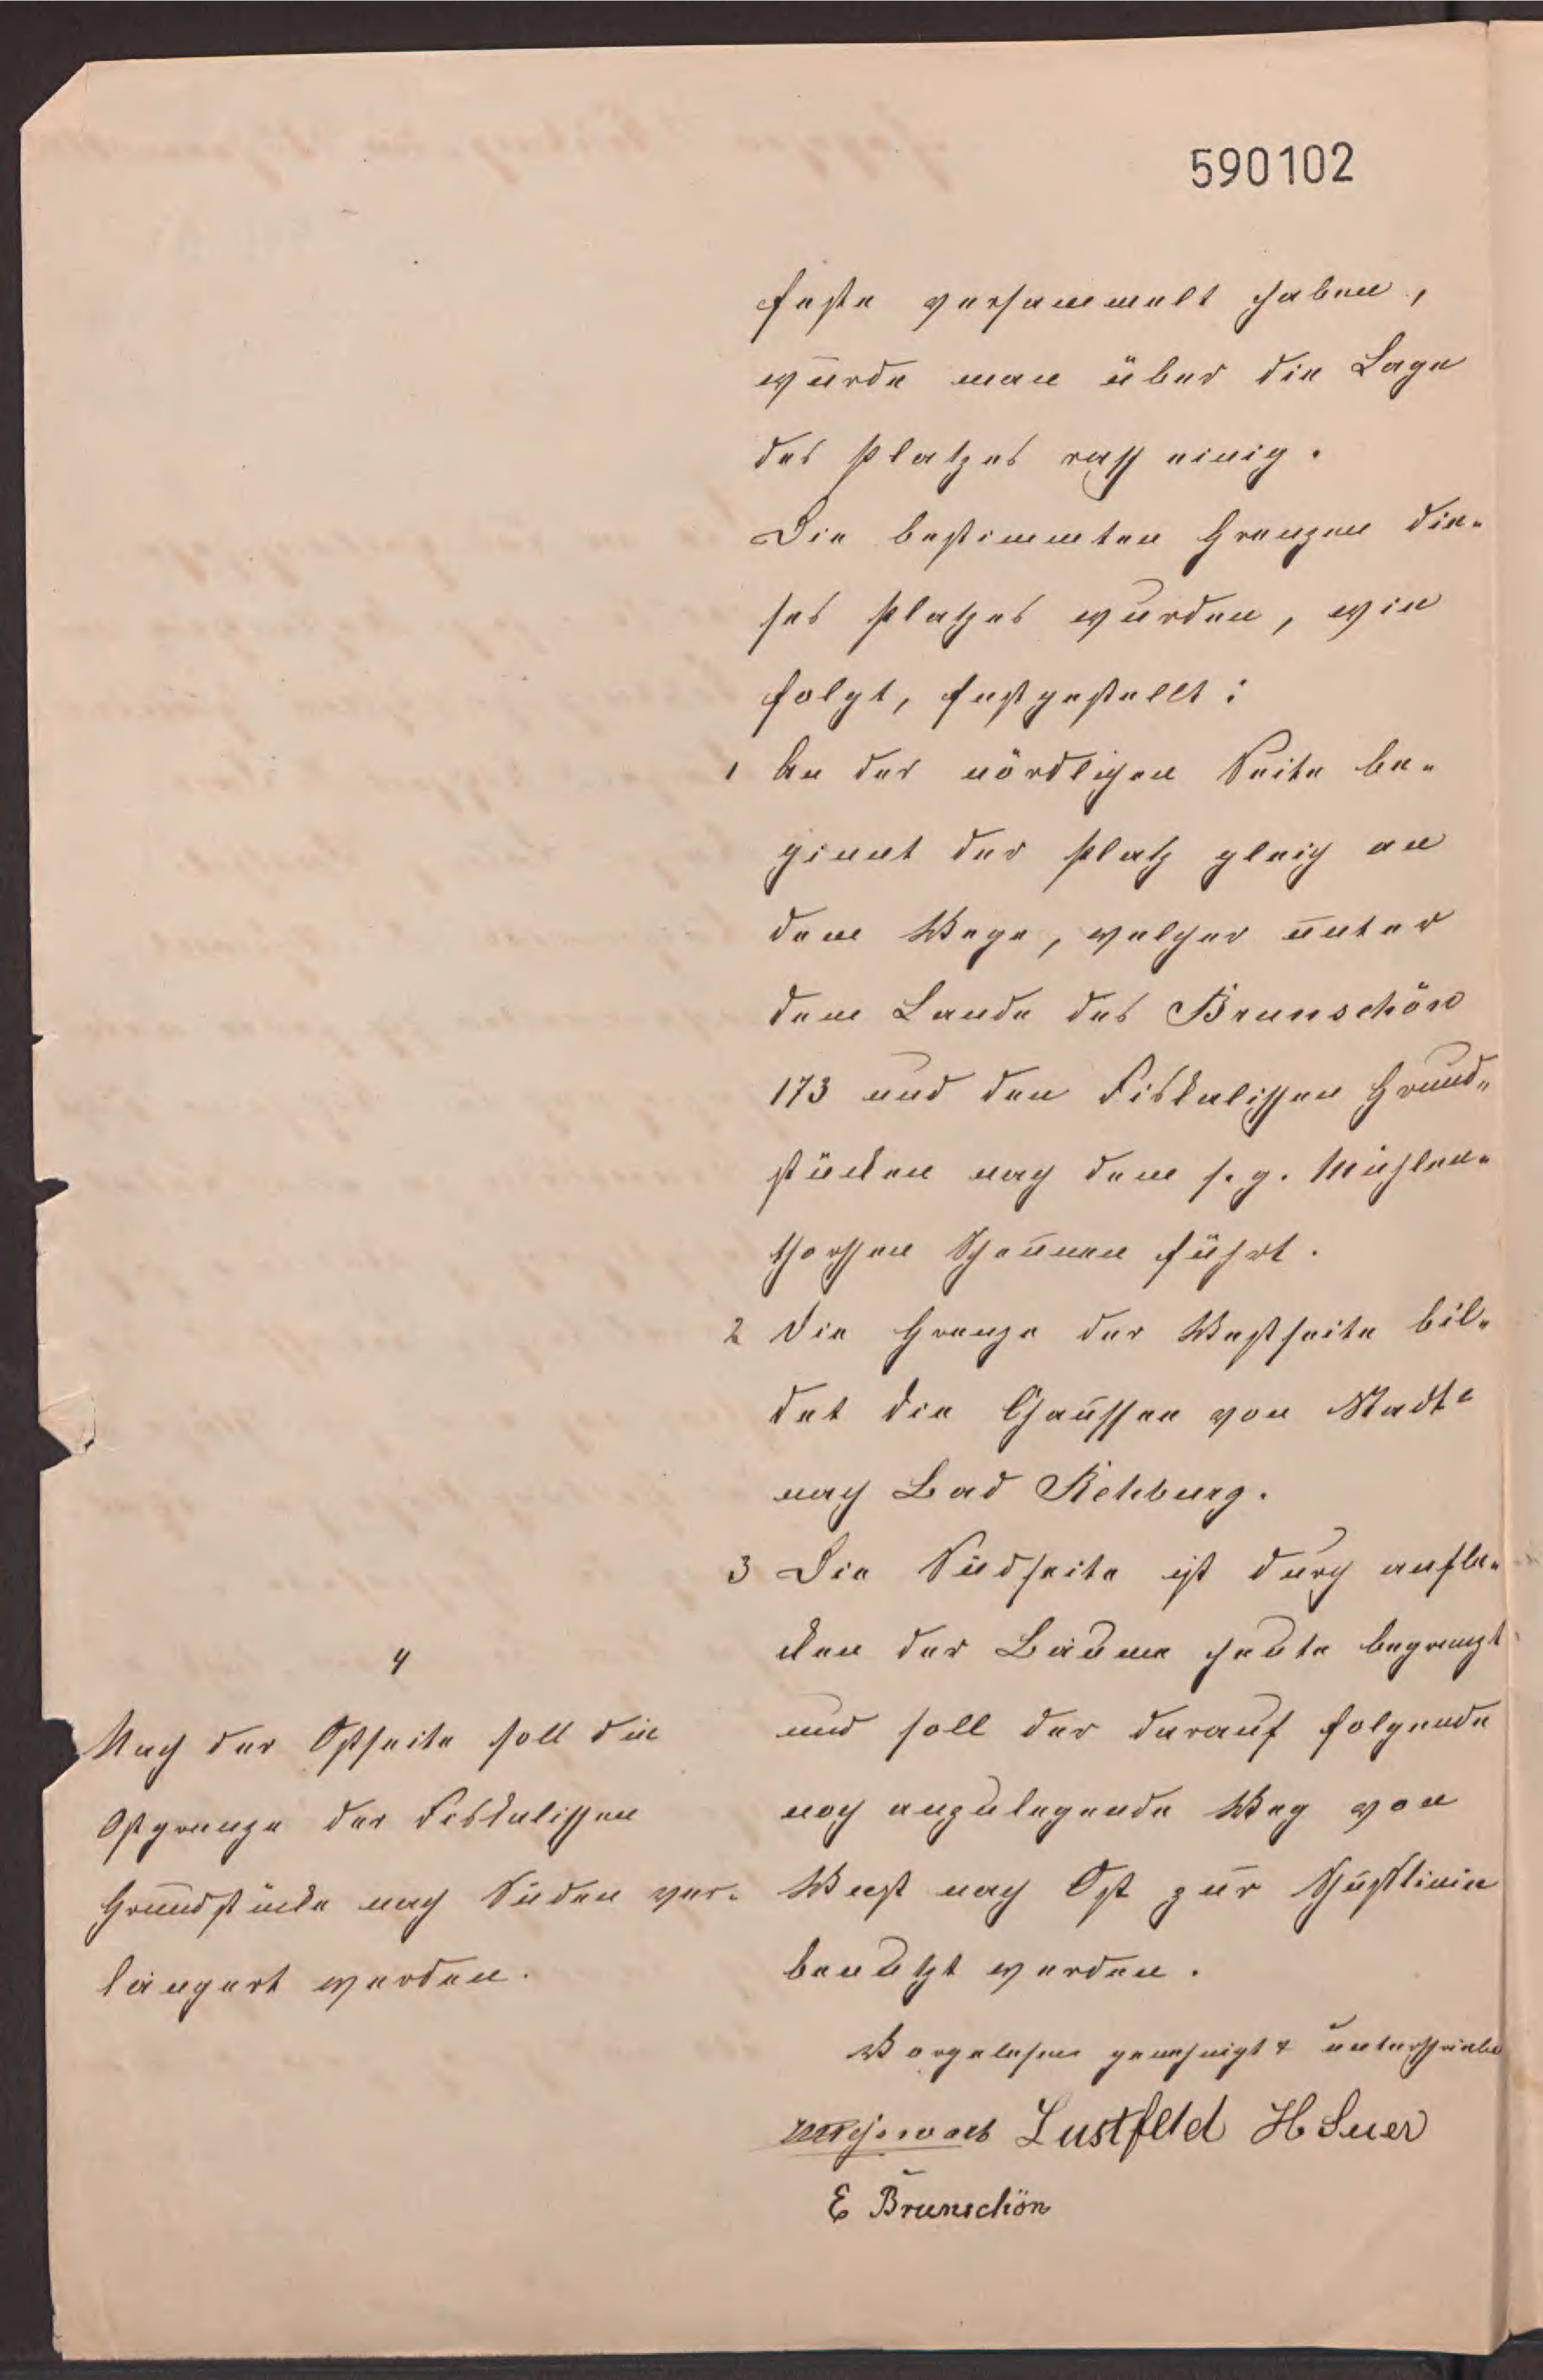 590102
feste versammelt haben,
wurde man über die Lage
des Platzes rasch einig.
Die bestimmten Grenzen die-
ses Platzes wurden, wie
folgt, festgestellt:
1 An der nördlichen Seite be-
ginnt der Platz gleich an
dem Wege, welcher unter
dem Lande des Brunschön
173 und den Fiskalischen Grund-
stücken nach dem s. g. Mühlen-
thorschen Scheunen führt.
2 Die Grenze der Westseite bil-
det die Chaussee von Stadt-
nach Bad Rehburg.
3 Die Südseite ist durch anfla-
cken der Bäume heute begrenzt
und soll der darauf folgende
noch anzulegende Weg von
West nach Ost zur Schußlinie
benutzt werden.
4
Nach der Ostseite soll die
Ostgrenze der Fiskalischen
Grundstücke nach Süden ver-
längert werden.
Vorgelesen genehmigt & unterschrieben
Lustfeld H Suer
E Brunschön